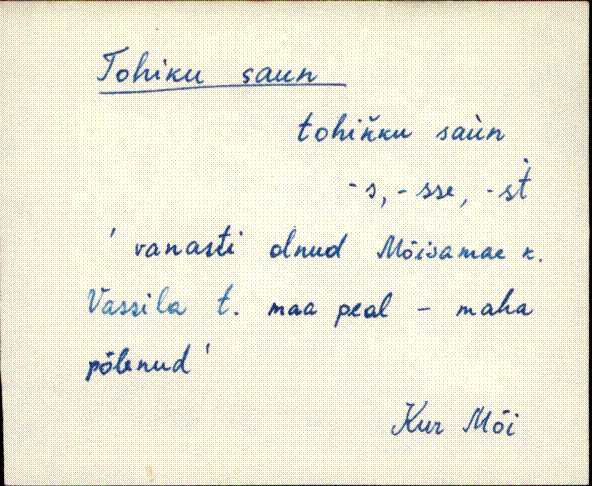 Tohiku saun
tohik̆ku saùn
-s, -sse, -st̀
'vanast̀i olnud Mõisamae k.
Vassila t. maa peal - maha
põlenud'
Kur Mõi